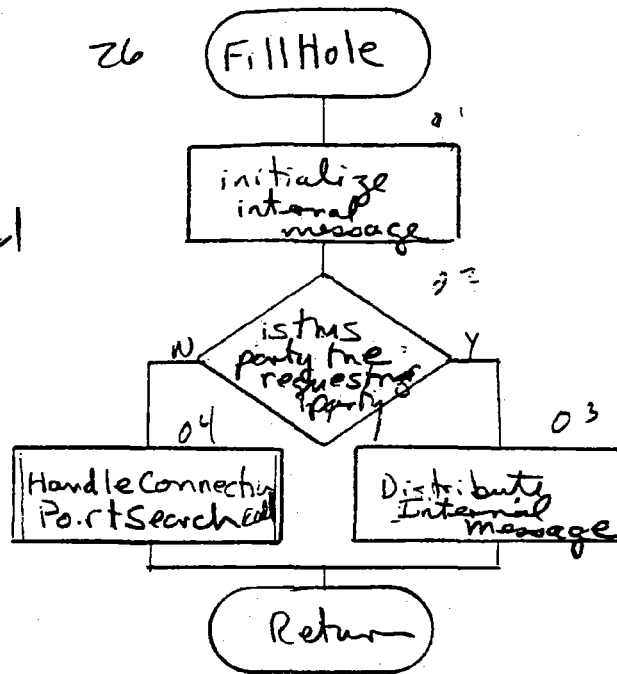 26
FillHole
01
initialize
internal
message
is this
party the
requesting
party
N
Y
04
03
HandleConnection
PortSearch Call
Distribute
Internal
Message
Return